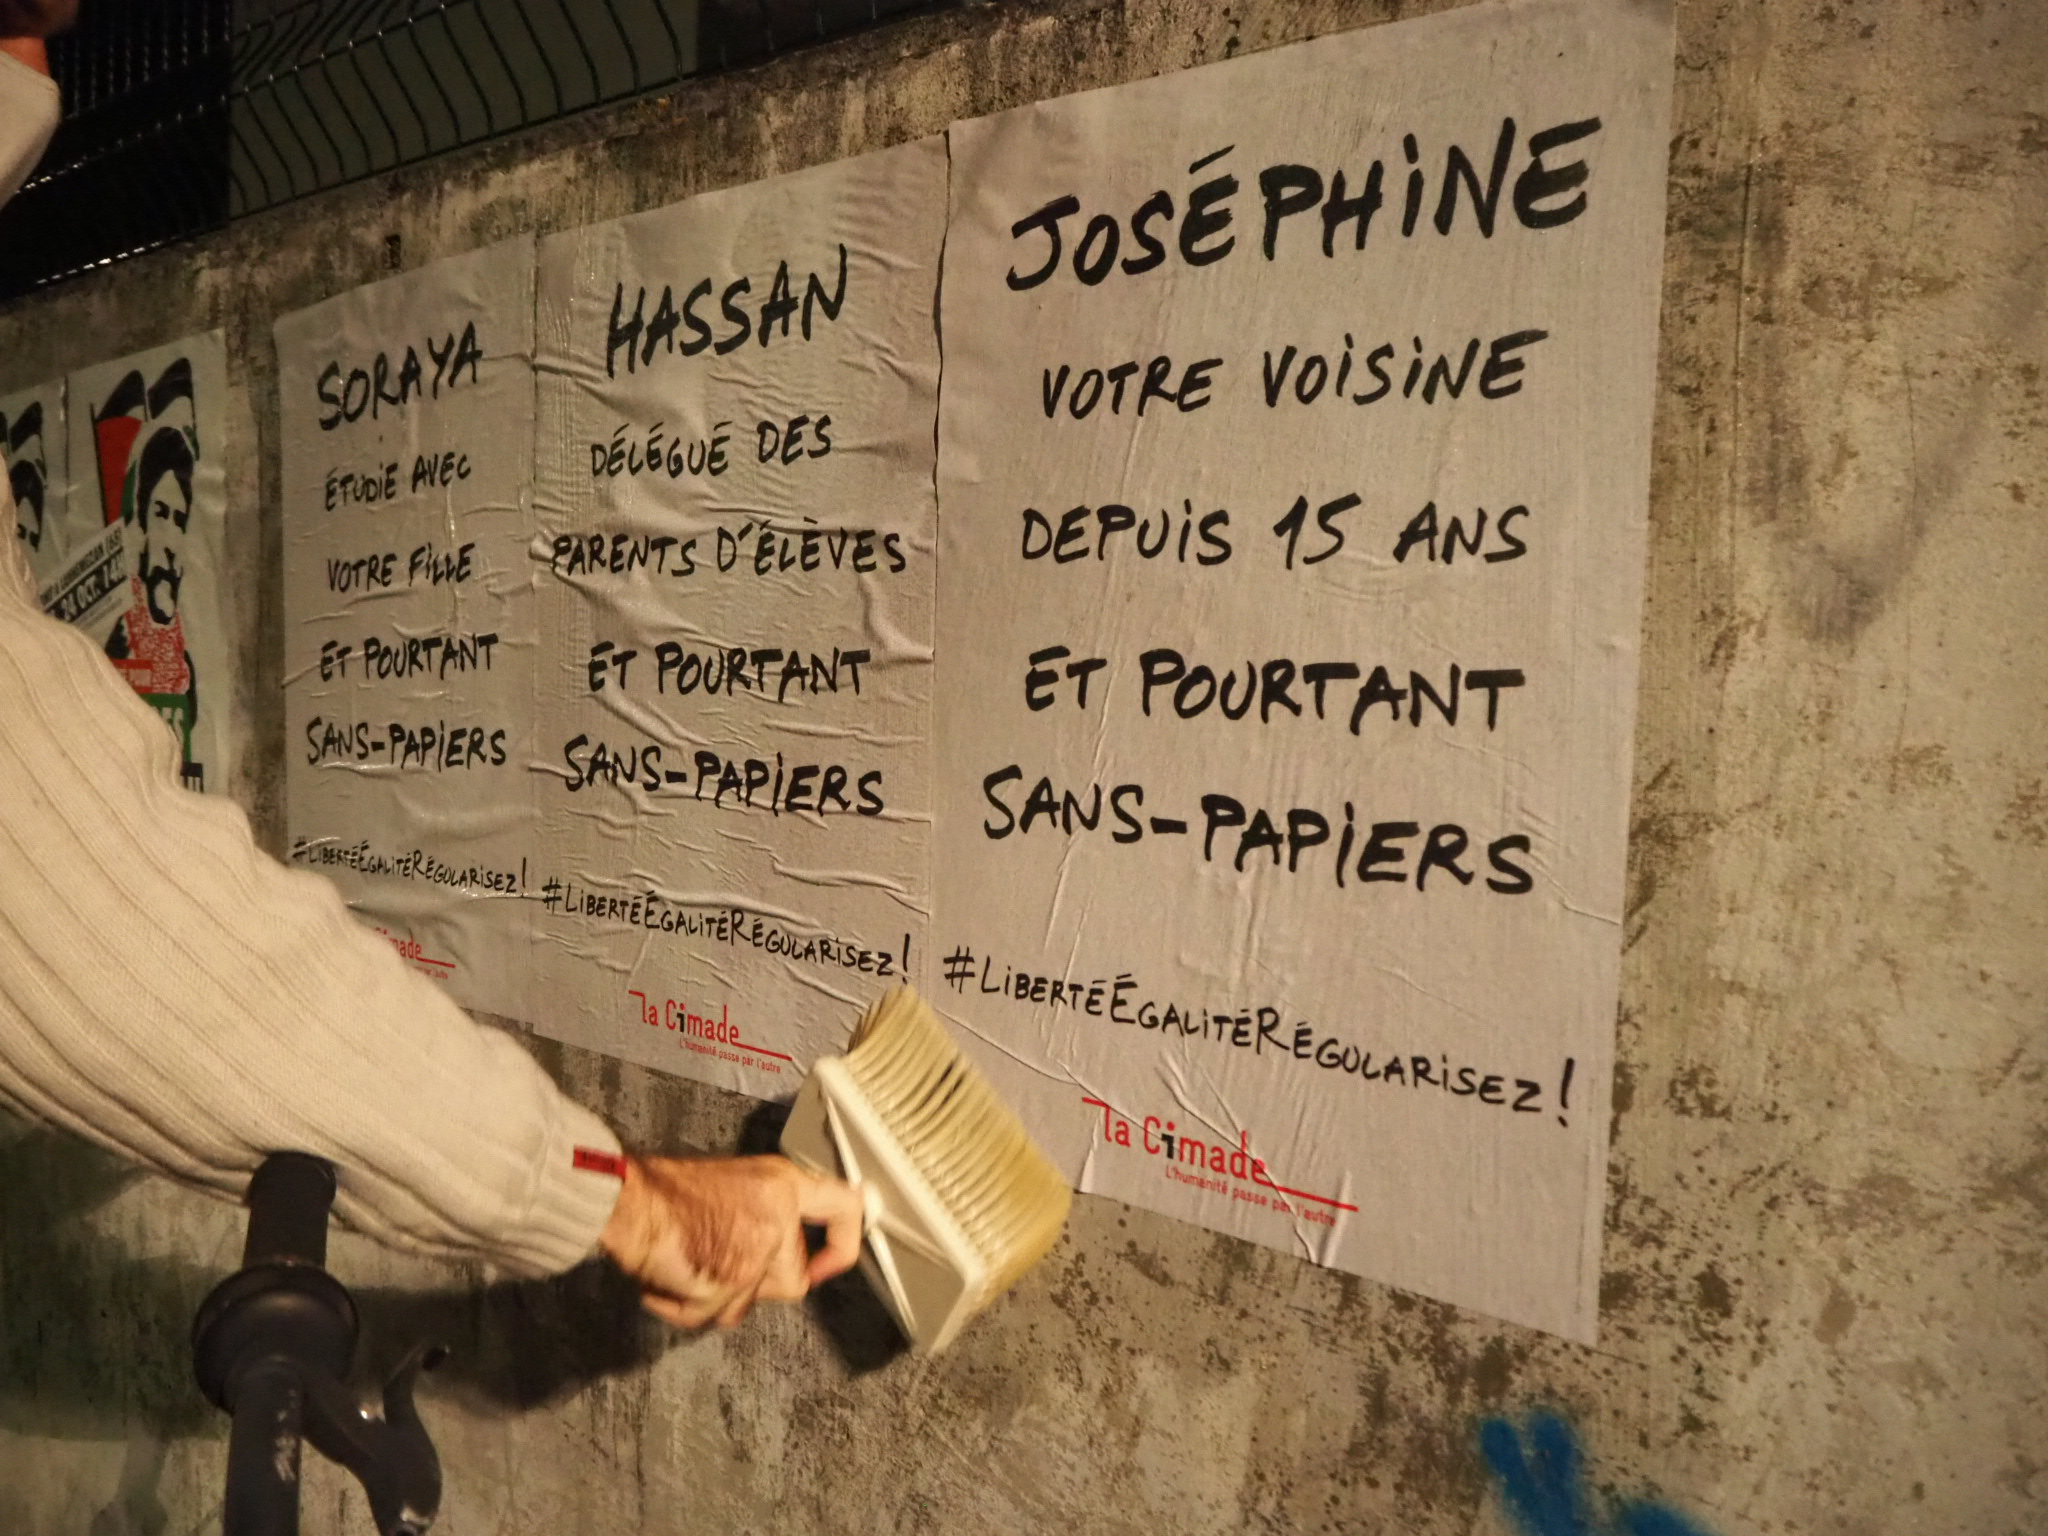 SORAYA
ÉTUDIE AVEC
VOTRE FILLE
ET POURTANT
SANS-PAPIERS
#LIBERTÉÉGALITÉRÉGULARISEZ!
HASSAN
DÉLÉGUÉ DES
PARENTS D'ÉLÈVES
ET POURTANT
SANS-PAPIERS
#LIBERTÉÉGALITÉRÉGULARISEZ!
la Cimade
L'humanité passe par l'autre
JOSÉPHINE
VOTRE VOISINE
DEPUIS 15 ANS
ET POURTANT
SANS-PAPIERS
#LIBERTÉÉGALITÉRÉGULARISEZ!
la Cimade
L'humanité passe par l'autre
24 OCT. 14